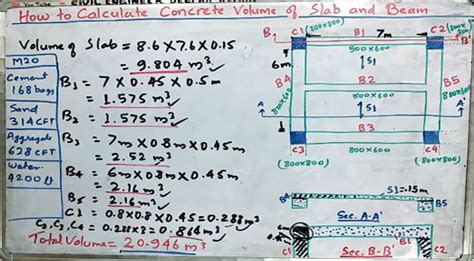 How to Calculate Concrete Volume of Slab and Beam
Volume of Slab = 8.6 x 7.6 x 0.15
= 9.804 m³
M20
Cement
168 bags
Sand
314 CFT
Aggregate
628 CFT
Water
4200 lt
B1 = 7 x 0.45 x 0.5m
= 1.575 m³
B2 = 1.575 m³
B3 = 7m x 0.8m x 0.45m
= 2.52 m³
B4 = 6m x 0.8m x 0.45m
= 2.16 m³
B5 = 2.16 m³
C1 = 0.8 x 0.8 x 0.45 = 0.288 m³
C2, C3, C4 = 0.288 x 3 = 0.864 m³
Total Volume = 20.946 m³
(800x800)
B
C1
B1
7m
C2
500x600
6m
S1
B4
800x600
B2
500x600
B5
800x600
A
A'
S1
B3
C3
800x600
C4
(800x800)
(800x800)
S1 = .15m
B5
Sec. A-A'
C1
B1
Sec. B-B'